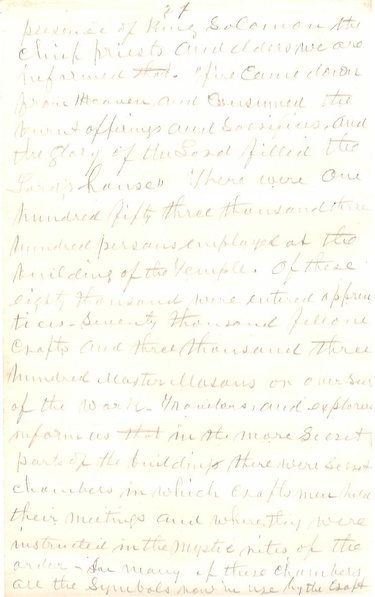 27
presence of King Solomon the
chief priests and elders we are
informed that. "fire came down
from Heaven and consumed the
burnt offerings and Sacrifices, and
the glory of the Lord filled the
Lord's house" There were one
hundred fifty three thousand three
hundred persons employed at the
building of the Temple. Of these
eighty thousand were entered appren
tices. Seventy thousand fellow
crafts and three thousand three
hundred Master Masons or overseers
of the work. Travelers, and explorers
inform us that in the more Secret
parts of the building there were Secret
chambers in which crafts men held
their meetings and where they were
instructed in the mystic rites of the
order - In many of these chambers
are the Symbols now in use by the Craft